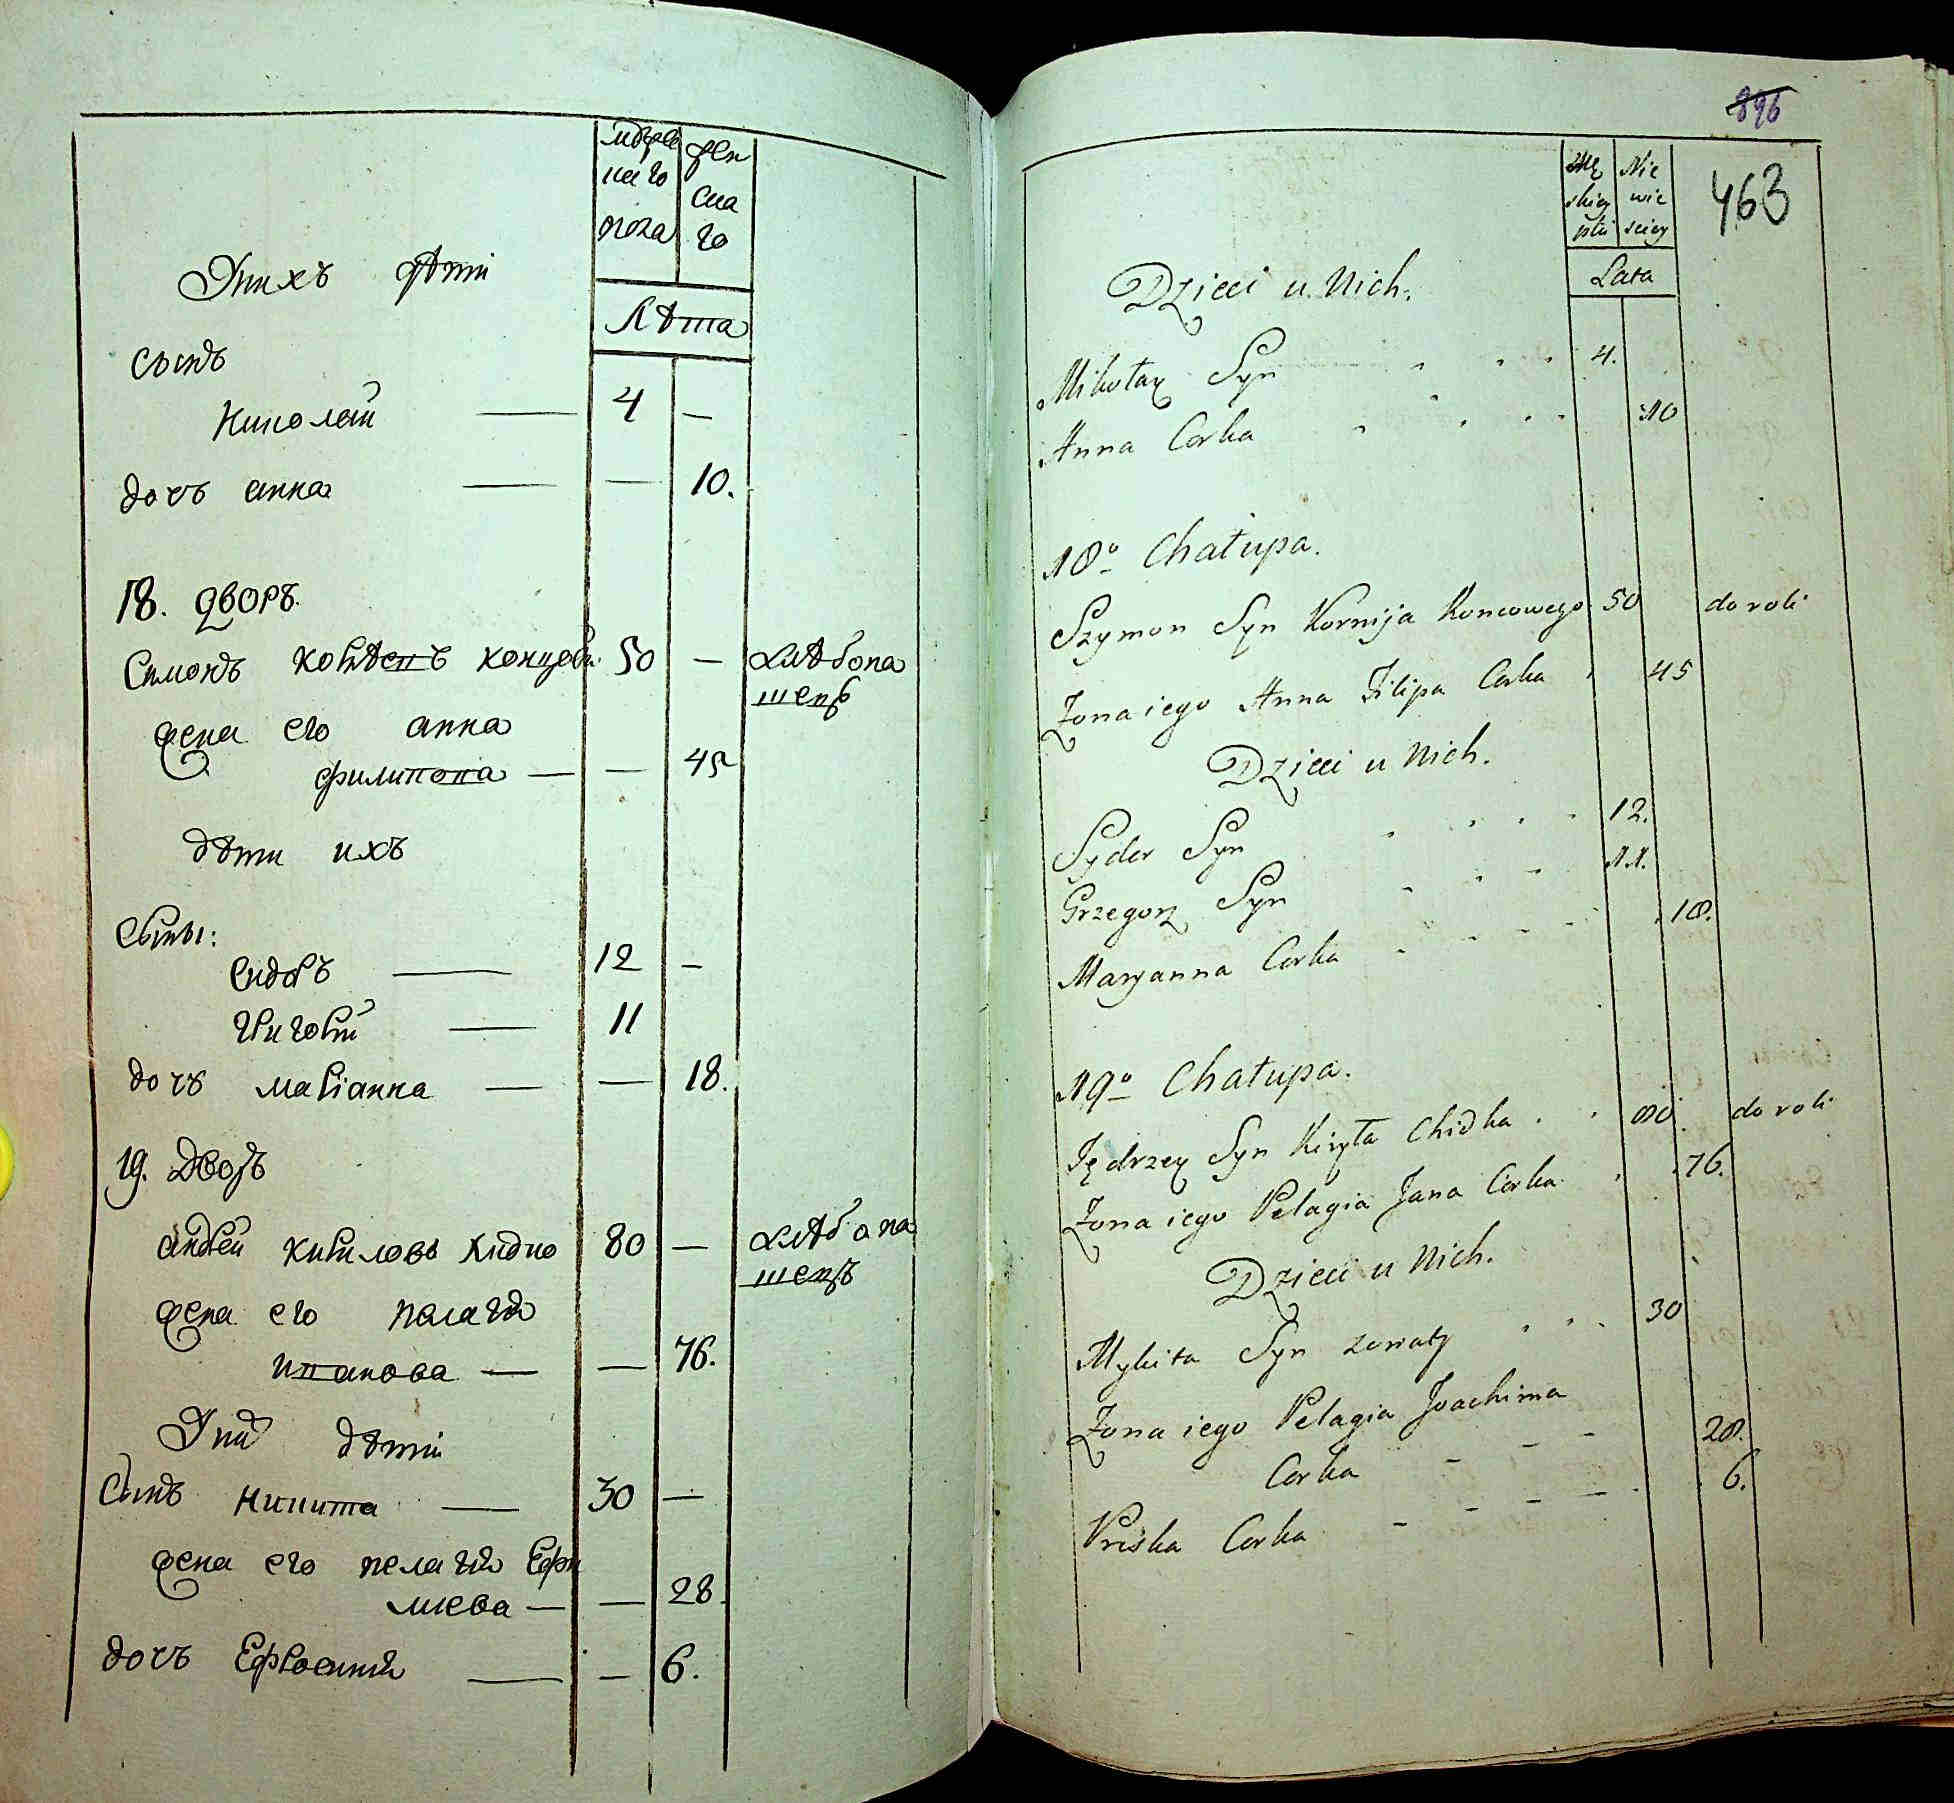 мужес
наго
пола
жен
ска
го
Лѣта
Этихъ дѣти
сынъ
Николай — 4 —
дочъ анна — — 10.
18. дворъ.
Симонъ корнѣевъ концов 50 — хлѣбопа
шецъ
жена его анна
филипова — — 45
дѣти ихъ
Сыны:
Сидоръ — 12 —
григорій — 11
дочъ маріанна — — 18.
19. Дворъ
андрей кириловъ хидко 80 — хлѣбопа
шецъ
жена его пелагія
иванова — — 76.
дѣти
Сынъ никита — 30 —
жена его пелагія Ефи
миева — — 28.
дочъ Ефросинія — — 6.
896
463
Mę
skiey
płci
Nie
wie
sciey
Lata
Dzieci u Nich.
Mikołay Syn 4.
Anna Corka 10
18o Chałupa.
Szymon Syn Kornija Koncowego 50 do roli
Zona iego Anna Filipa Corka 45
Dzieci u Nich.
Sydor Syn 12.
Grzegorz Syn 11.
Maryanna Corka 18.
19o Chałupa.
Jędrzey Syn Kiryła Chidka 80. do roli
Zona iego Pelagia Jana Corka 76.
Dzieci u Nich.
Mykita Syn zonaty 30
Zona iego Pelagia Joachima
Corka 28.
Priska Corka 6.